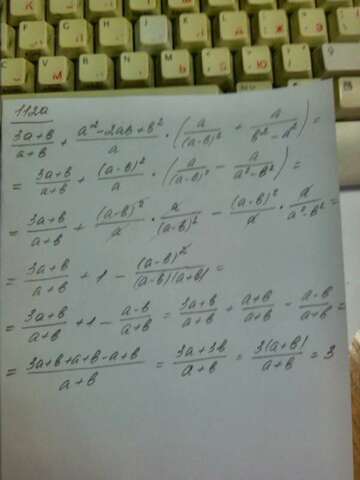 112a
\frac{3a+b}{a+b} + \frac{a^2-2ab+b^2}{a} \cdot \left(\frac{a}{(a-b)^2} + \frac{a}{b^2-a^2}\right) =
= \frac{3a+b}{a+b} + \frac{(a-b)^2}{a} \cdot \left(\frac{a}{(a-b)^2} - \frac{a}{a^2-b^2}\right) =
= \frac{3a+b}{a+b} + \frac{(a-b)^2}{a} \cdot \frac{a}{(a-b)^2} - \frac{(a-b)^2}{a} \cdot \frac{a}{a^2-b^2} =
= \frac{3a+b}{a+b} + 1 - \frac{(a-b)^2}{(a-b)(a+b)} =
= \frac{3a+b}{a+b} + 1 - \frac{a-b}{a+b} = \frac{3a+b}{a+b} + \frac{a+b}{a+b} - \frac{a-b}{a+b} =
= \frac{3a+b+a+b-a+b}{a+b} = \frac{3a+3b}{a+b} = \frac{3(a+b)}{a+b} = 3